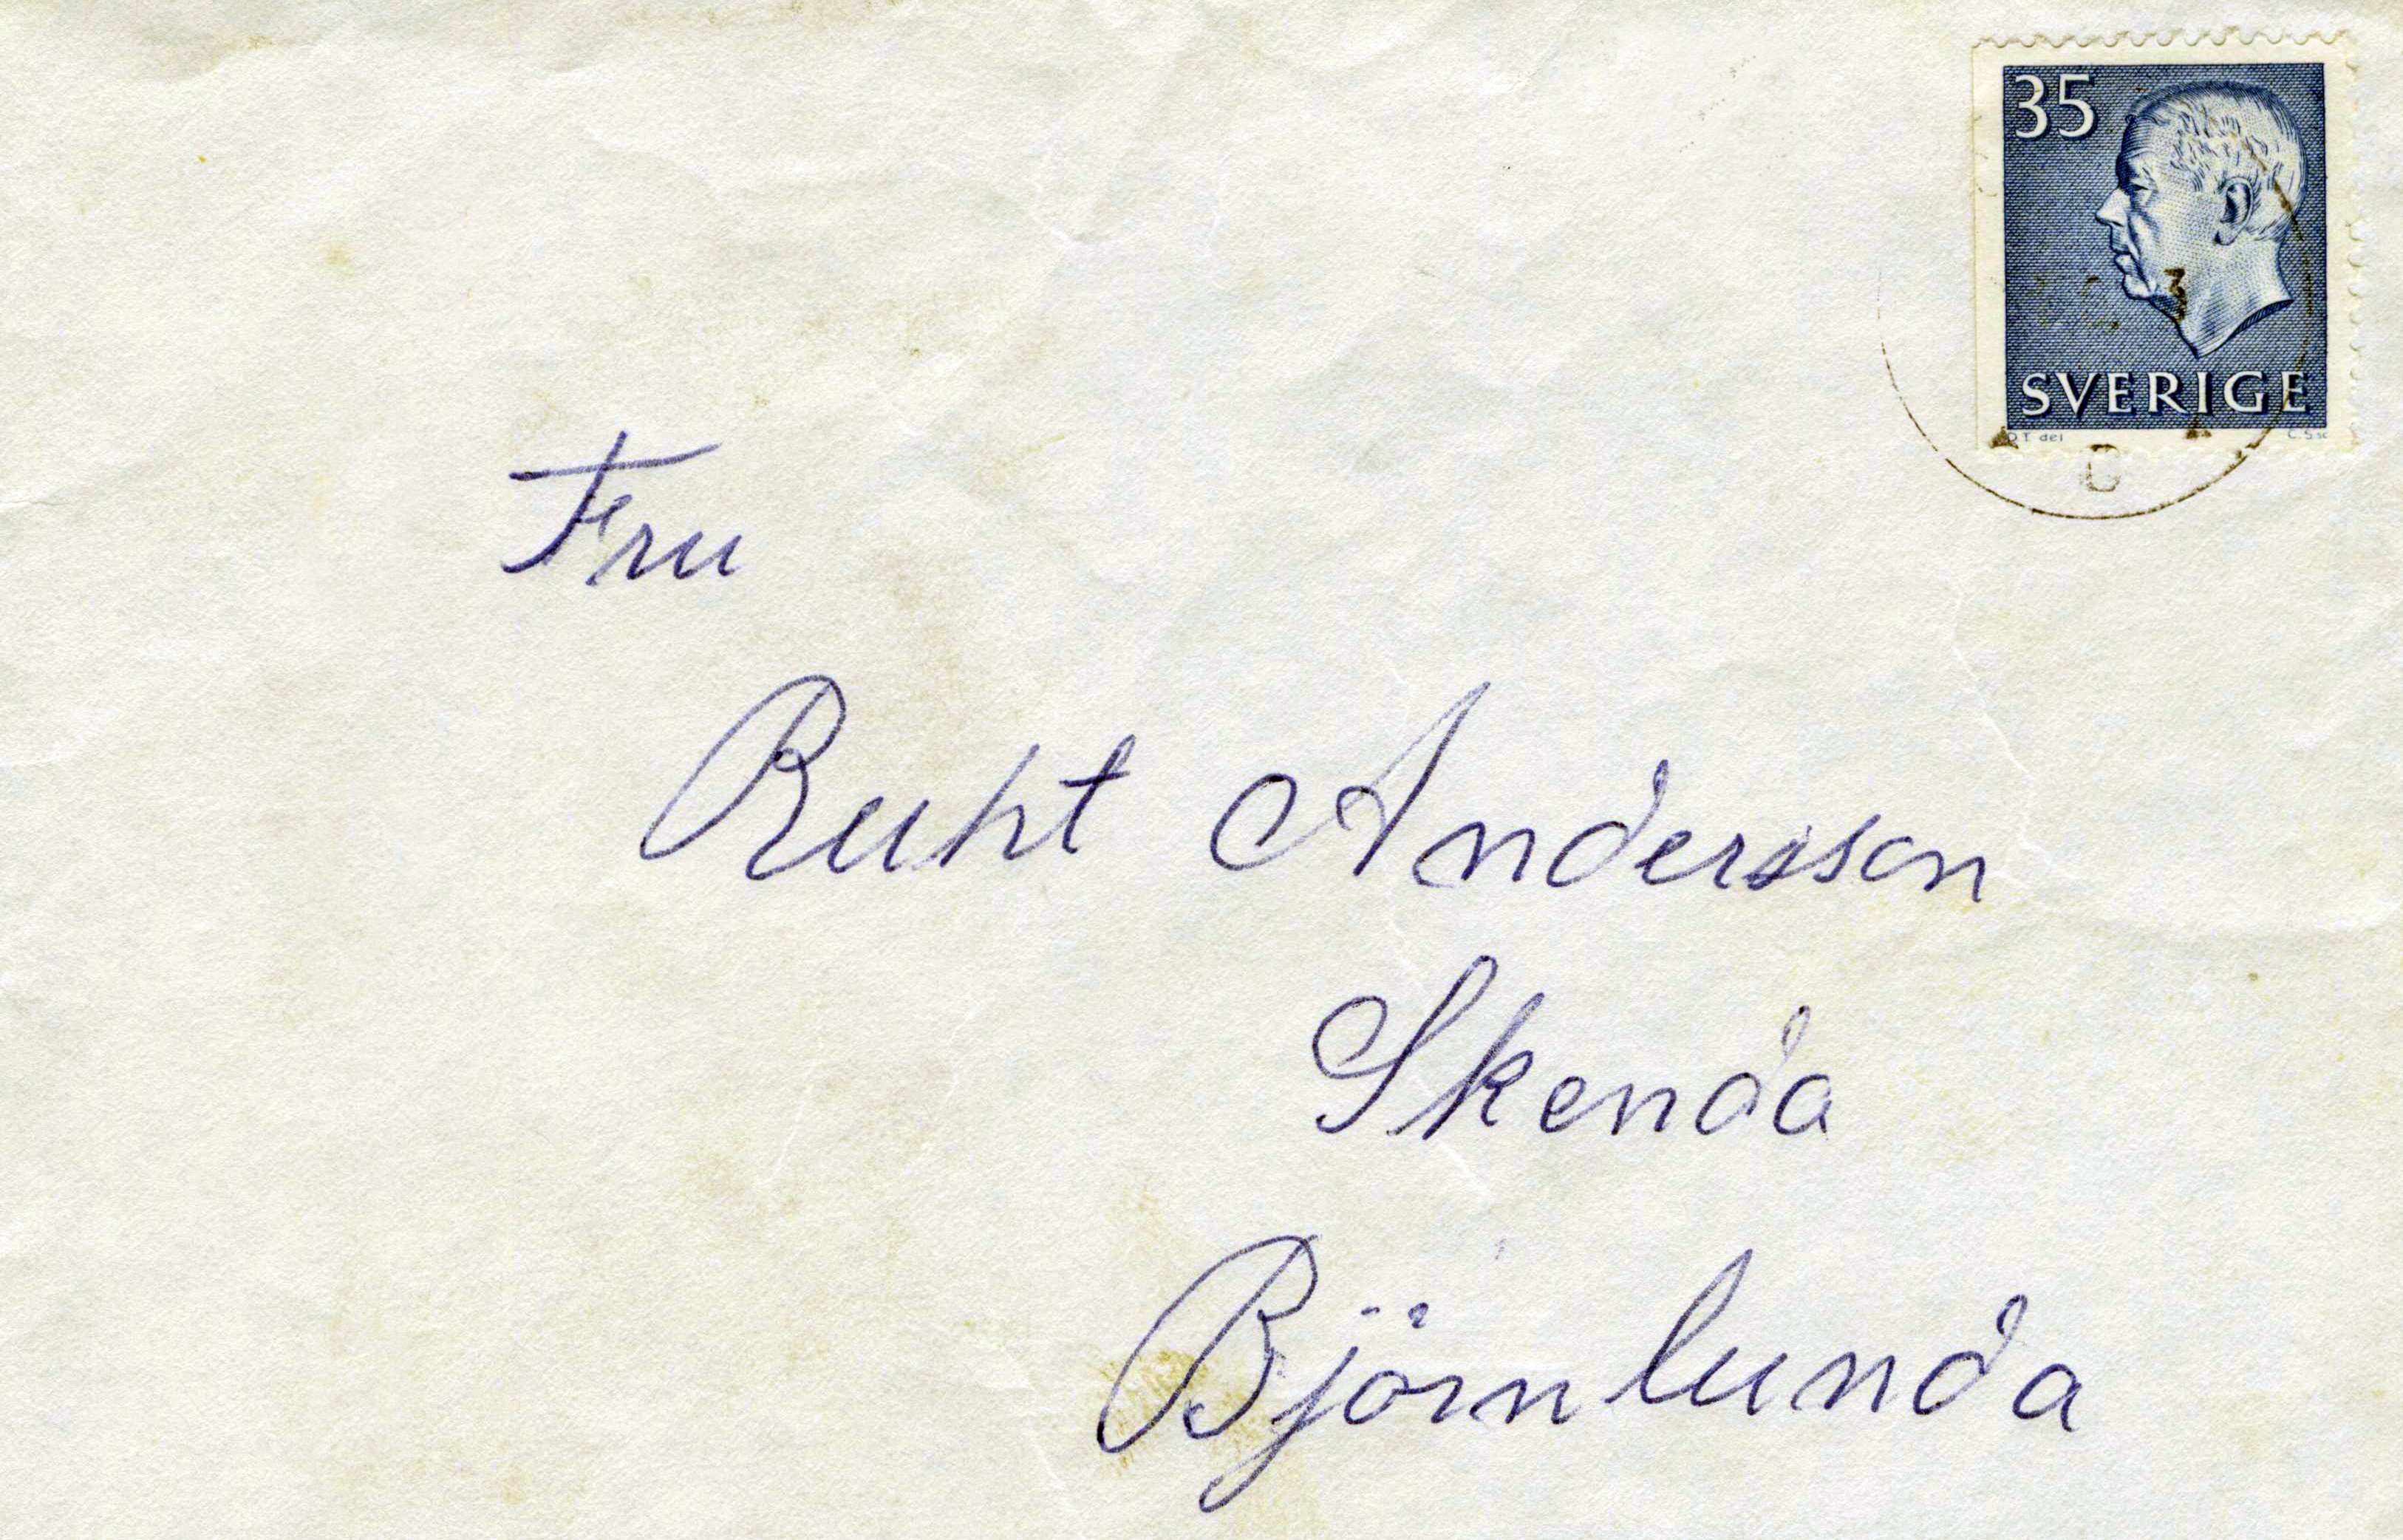 35
SVERIGE
C
Fru
Ruht Andersson
Skenda
Björnlunda